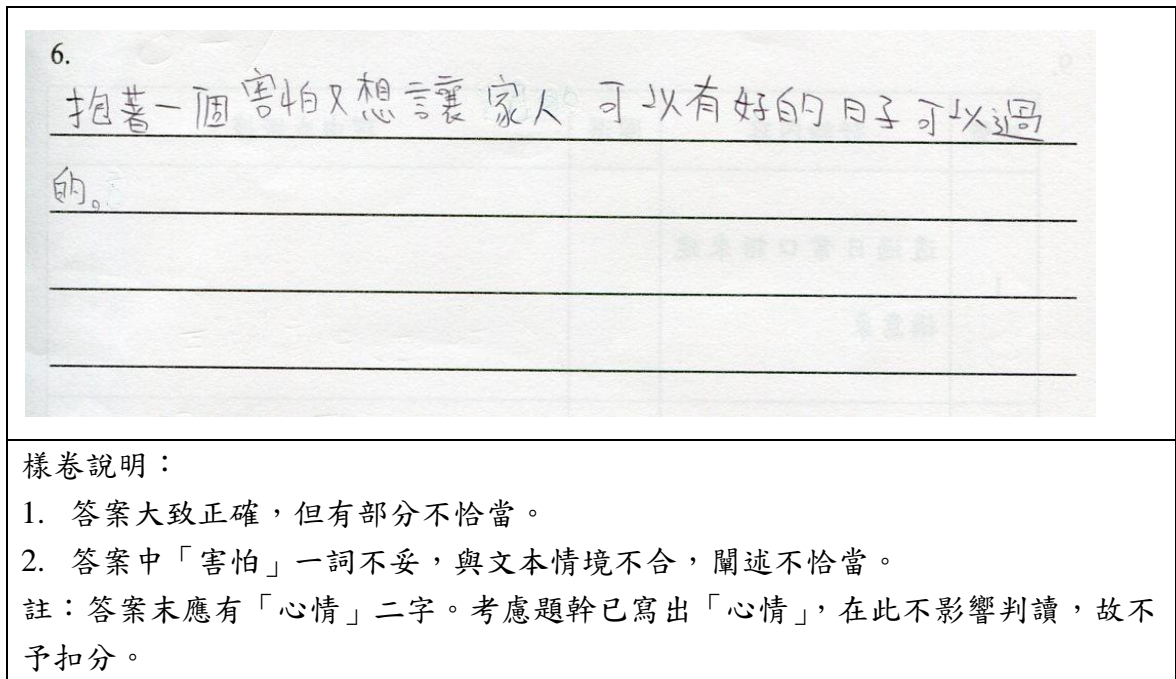 6.
抱著一個害怕又想讓家人可以有好的日子可以過
的。
樣卷說明：
1. 答案大致正確，但有部分不恰當。
2. 答案中「害怕」一詞不妥，與文本情境不合，闡述不恰當。
註：答案末應有「心情」二字。考慮題幹已寫出「心情」，在此不影響判讀，故不
予扣分。